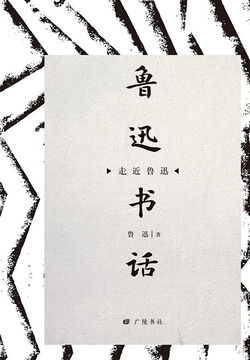 鲁迅书话
▶走近鲁迅◀
鲁迅|著
广陵书社